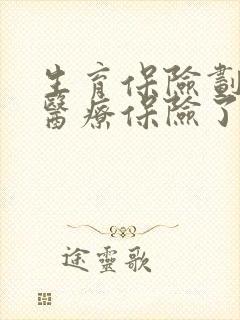 生育保險劃
醫療保險了
途靈歌